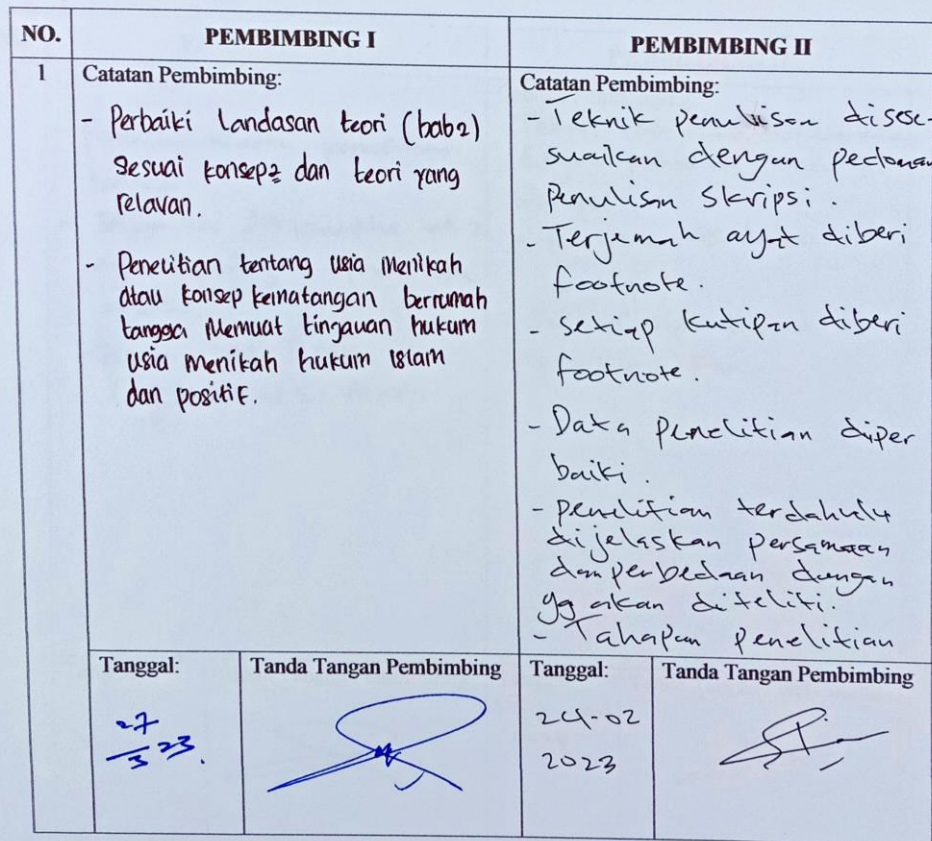 NO.
PEMBIMBING I
PEMBIMBING II
1
Catatan Pembimbing:
- Perbaiki Landasan teori (bab2)
sesuai konsep2 dan teori yang
relavan.
- Penelitian tentang usia menikah
atau konsep kematangan berrumah
tangga Memuat tingauan hukum
usia menikah hukum islam
dan positif.
Catatan Pembimbing:
- Teknik penulisan disese-
suaikan dengan pedoman
Penulisan Skripsi.
- Terjemah ayat diberi
footnote.
- setiap kutipan diberi
footnote.
- Data penelitian diper
baiki.
- penelitian terdahulu
dijelaskan persamaan
dan perbedaan dengan
yg akan diteliti.
- Tahapan penelitian
Tanggal:
27
3 23.
Tanda Tangan Pembimbing
Tanggal:
24-02
2023
Tanda Tangan Pembimbing